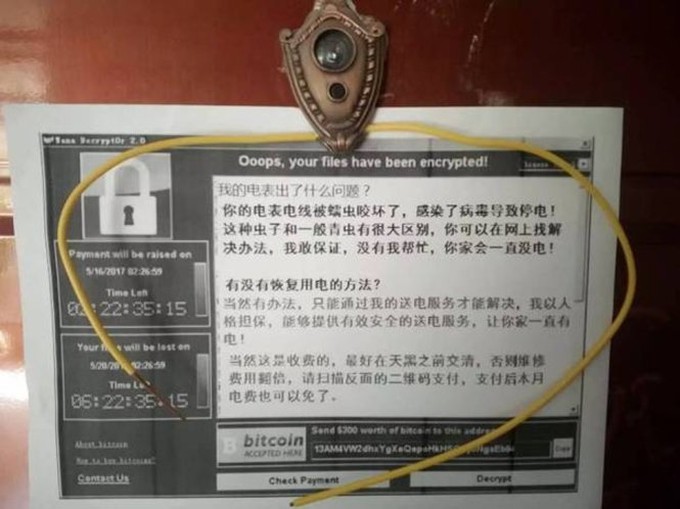 Wana Decrypt0r 2.0
Ooops, your files have been encrypted!
Payment will be raised on
5/16/2017 02:26:59
Time Left
02:22:35:15
Your files will be lost on
5/20/2017 02:26:59
Time Left
06:22:35:15
我的电表出了什么问题？
你的电表电线被蠕虫咬坏了，感染了病毒导致停电！
这种虫子和一般青虫有很大区别，你可以在网上找解
决办法，我敢保证，没有我帮忙，你家会一直没电！
有没有恢复用电的方法？
当然有办法，只能通过我的送电服务才能解决，我以人
格担保，能够提供有效安全的送电服务，让你家一直有
电！
当然这是收费的，最好在天黑之前交清，否则维修
费用翻倍，请扫描反面的二维码支付，支付后本月
电费也可以免了。
About bitcoin
How to buy bitcoins?
Contact Us
bitcoin
ACCEPTED HERE
Send $300 worth of bitcoin to this address
Copy
Check Payment
Decrypt